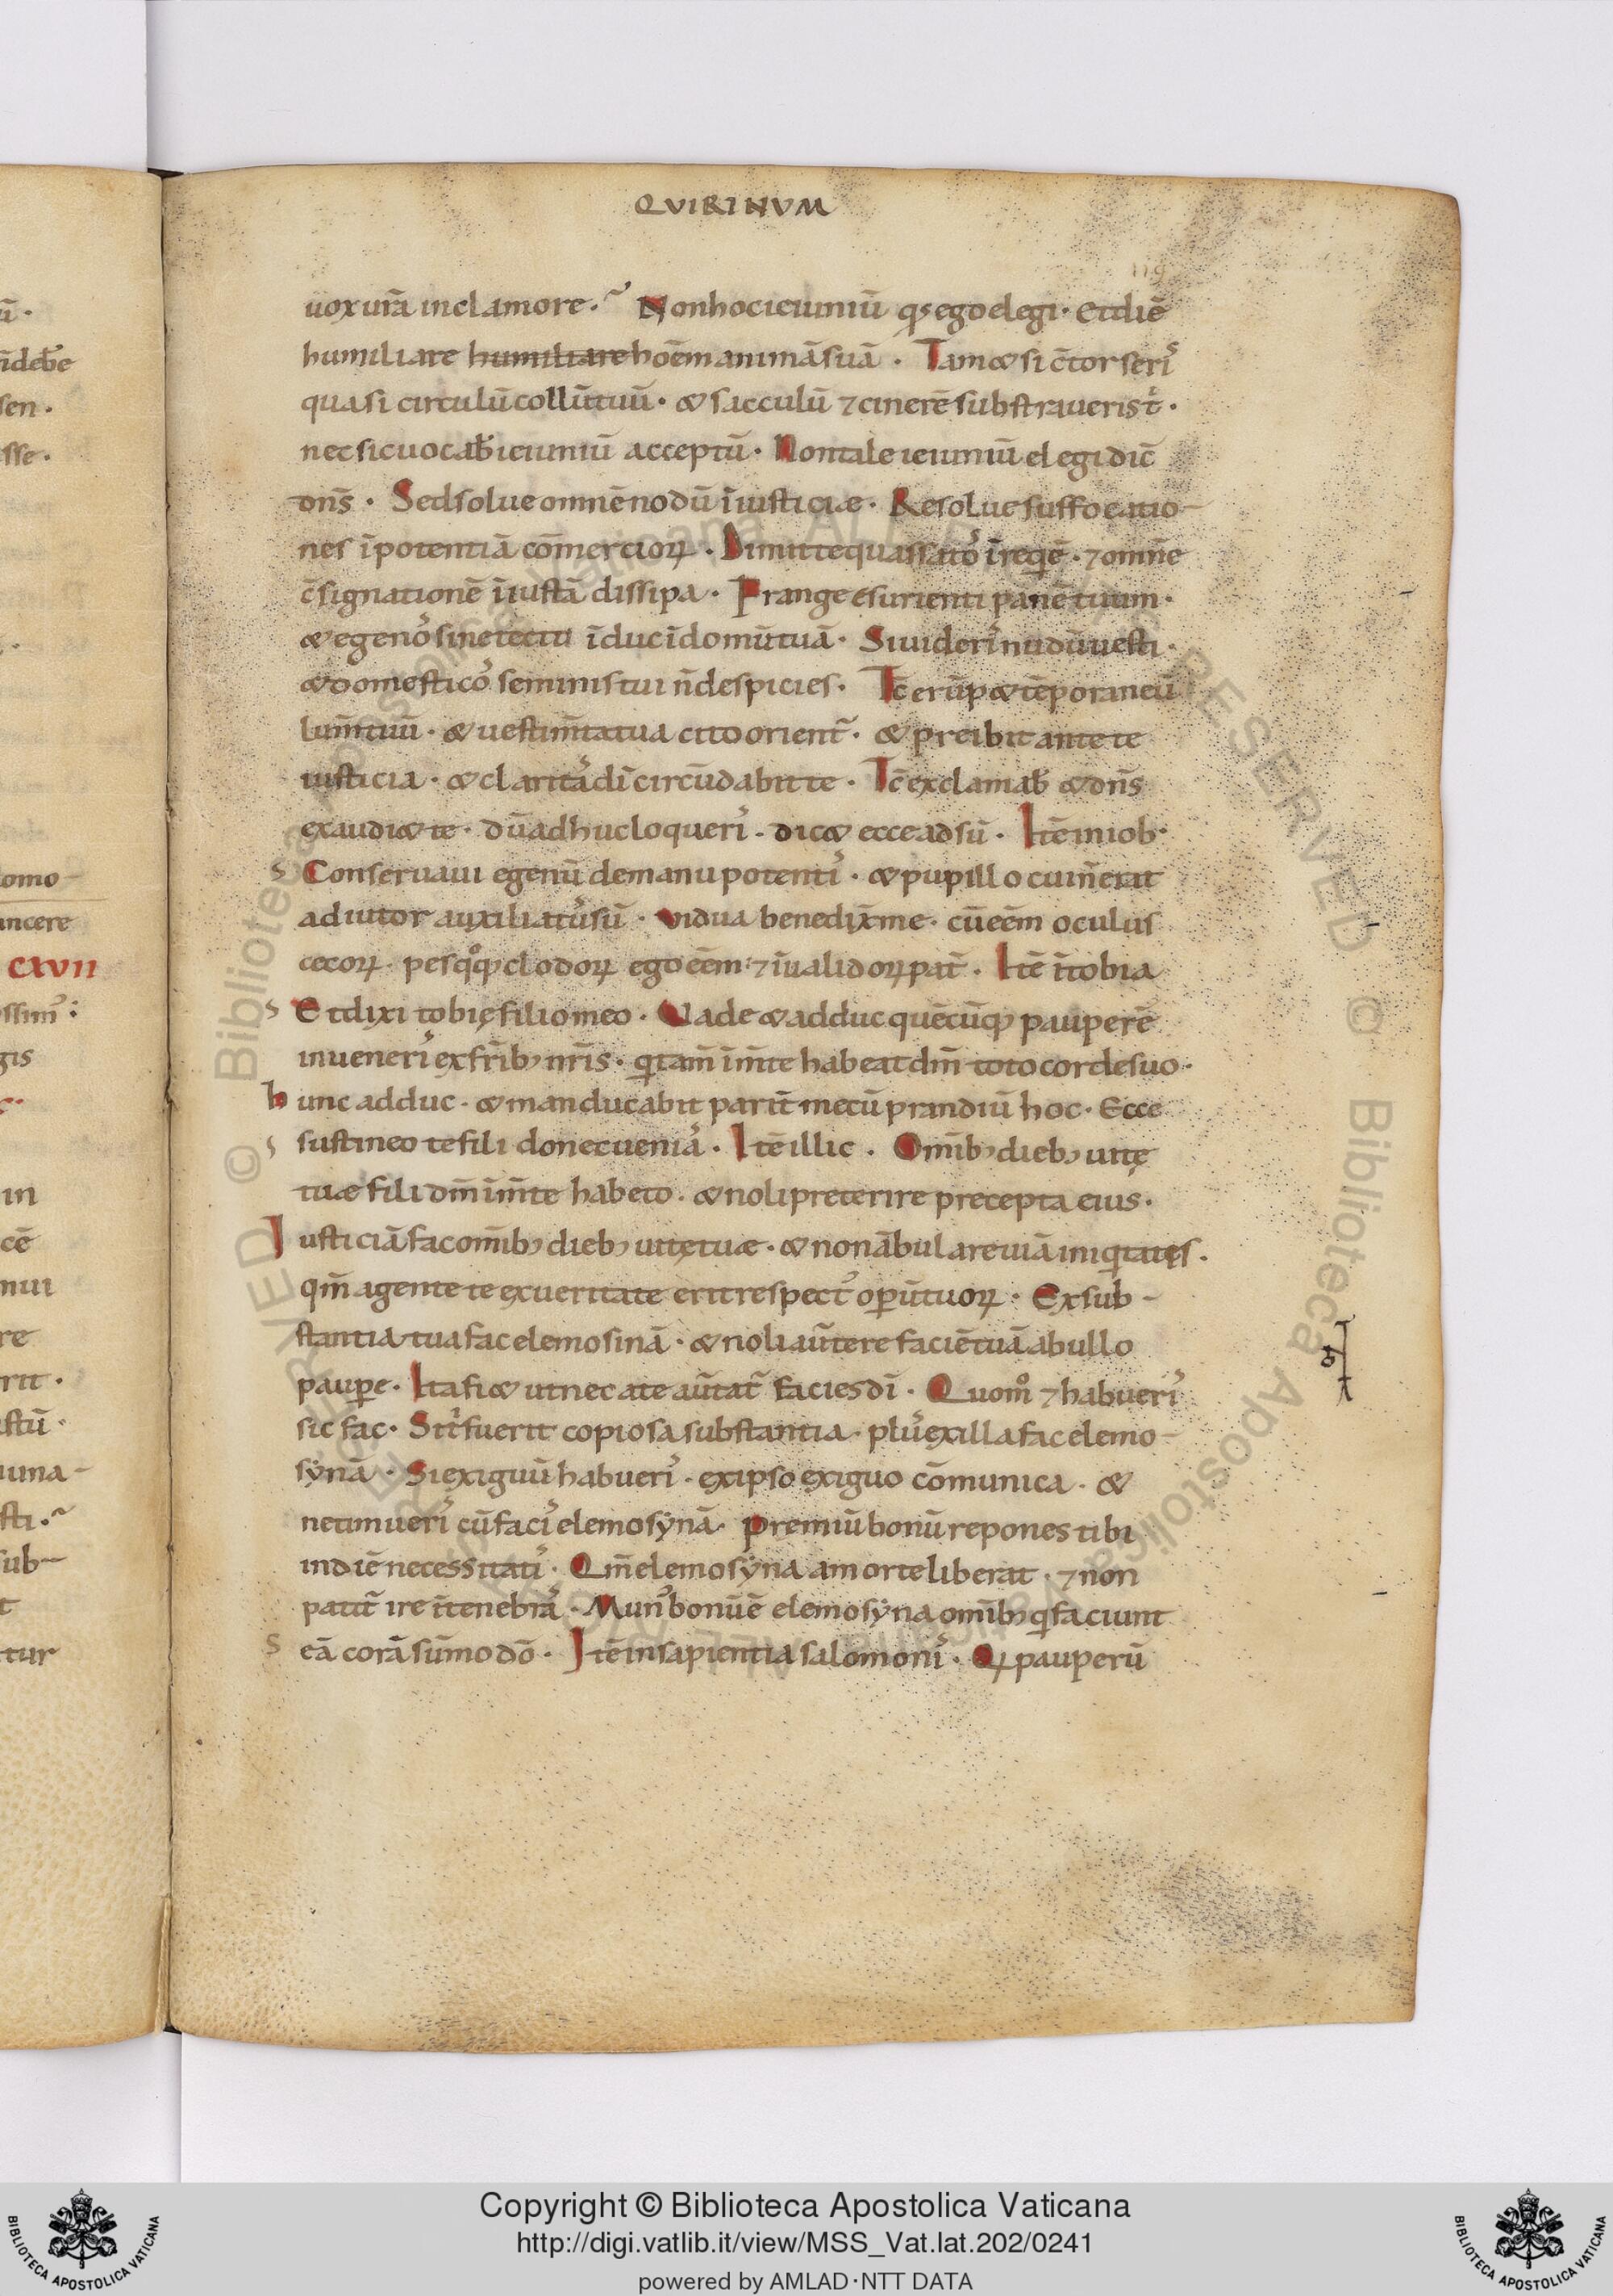 QVIRINVM
119
uox ur̄a in clamore. Non hoc ieiuniū qs ego elegi · Et diē
humiliare humiliare hoēm animā suā · Tam & si c̄torseris
quasi circulū collū tuū · & sacculū ⁊ cinerē substraueris t̄ ·
nec sic uocab̄ ieiuniū acceptū · Non tale ieiuniū elegi dic̄
dn̄s · Sed solue omnē nodū īiusticiae · Resolue suffocatio-
nes īpotentiā com̄ercioꝝ · Dimitte quassatos īreqē · ⁊ omn̄e
c̄signationē īiustā dissipa · Frange esurienti panē tuum ·
& egenos sine tecto īduc ī domū tuā · Si uideris nudū uesti ·
& domesticos seminis tui n̄ despicies · Tc̄ erūp& tēporaneū
lum̄ tuū · & uestim̄ta tua cito orient̄ · & preibit ante te
iusticia · & claritas dī circūdabit te · Tc̄ exclamab̄ & dn̄s
exaudi& te · dū adhuc loqueris · dic& ecce adsū · Itē in iob ·
s Conseruaui egenū de manu potentis · & pupillo cui n̄ erat
adiutor auxiliatus sū · uidua benedix̄ me · cū eēm oculus
cecoꝝ · pes qoqꝫ clodoꝝ ego eēm · ⁊ īualidoꝝ pat̄ · Itē ī tobia
s Et dixi tobię filio meo · Vade & adduc quēcūqꝫ pauperē
inueneris ex fr̄ibꝫ nr̄is · qi tam̄ im̄te habeat dm̄ toto corde suo ·
hunc adduc · & manducabit parit̄ mecū prandiū hoc · Ecce
s sustineo te fili donec uenias · Itē illic · Omībꝫ diebꝫ uitę
tuae fili dm̄ im̄te habeto · & noli preterire precepta eius ·
Iusticiā fac omībꝫ diebꝫ uitę tuae · & non ābulare uiā iniqitatęs ·
qm̄ agente te ex ueritate erit respectus op̄ū tuoꝝ · Ex sub-
stantia tua fac elemosinā · & noli aūtere faciē tuā ab ullo
paup̄e · Ita fi& ut nec a te aūtat̄ facies dī · Quomo ⁊ habueris
sic fac · Si t fuerit copiosa substantia · plus ex illa fac elemo-
synā · Si exiguū habueris · ex ipso exiguo cōmunica · &
ne timueris cū facis elemosynā · Premiū bonū repones tibi
in diē necessitatis · Qm̄ elemosyna a morte liberat · ⁊ non
patit̄ ire ī tenebras · Munus bonū ē elemosyna omībꝫ qi faciunt
s eā corā sūmo dō · Itē in sapientia salomonis · Qꝝ pauperū
ū ·
debēe
sen ·
sse ·
omo-
uncere
CXVII
gis
in
cē
mui
re
rit ·
stū ·
una-
sti ·
sub-
t
tur
Copyright © Biblioteca Apostolica Vaticana
http://digi.vatlib.it/view/MSS_Vat.lat.202/0241
powered by AMLAD·NTT DATA
BIBLIOTECA APOSTOLICA VATICANA
BIBLIOTECA APOSTOLICA VATICANA